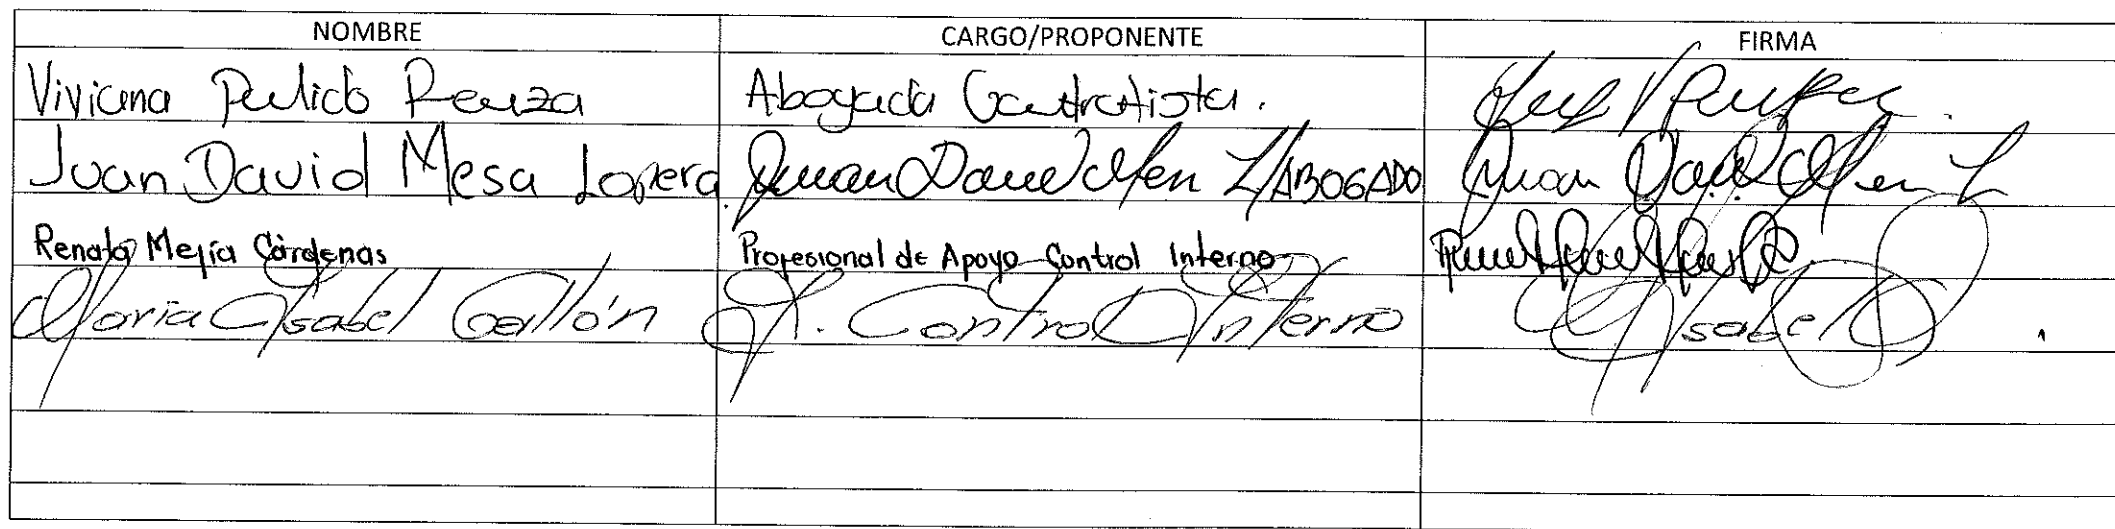 NOMBRE CARGO/PROPONENTE FIRMA
Viviana Pulido Abogada Contratista.
Juan David Mesa Lopera Juan David Mesa L/ABOGADO Juan David Mesa L
Renata Mejía Cárdenas Profesional de Apoyo Control Interno
Maria Isabel Gallón J. Control Interno Isabel